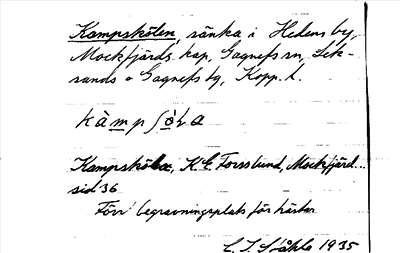 Kampskölen, sänka i Hedens by,
Mockfjärds kap, Gagnefs sn, Lek-
sands o Gagnefs tg, Kopp. l.
kàmpʃò̱ɫa
Kampsköla, K E Forsslund, Mockfjärd
sid 36
Förr begravningsplats för hästar
E. I. Ståhle 1935